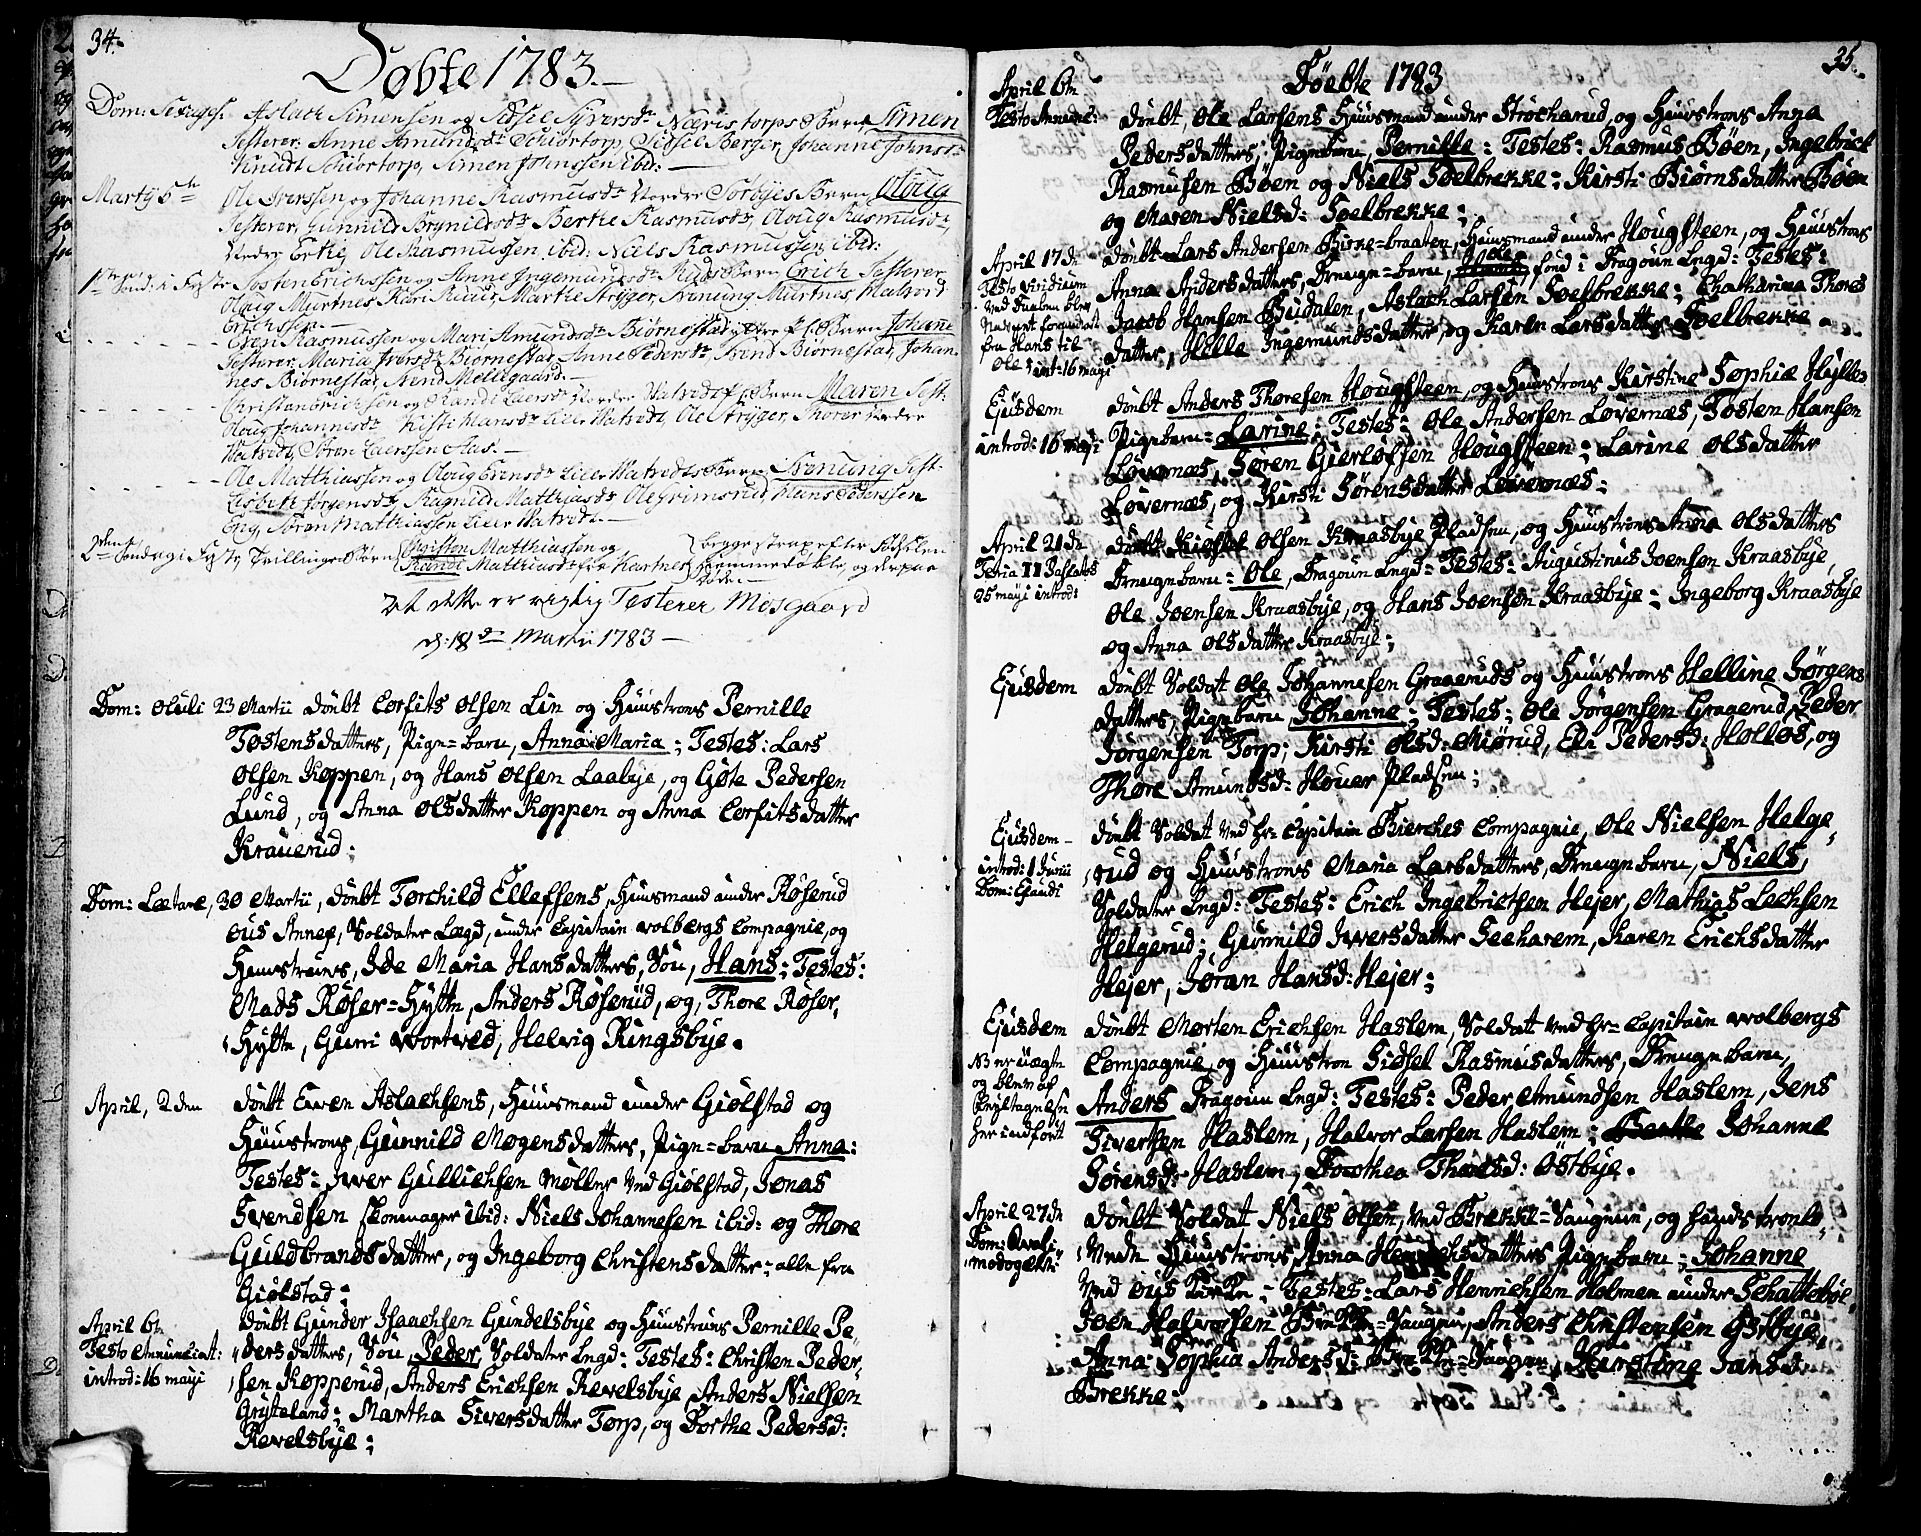 34.
Døbte 1783.
Dom: Sexages. Aslach Simensen og Sidsel Syversdr Næristorps Barn Simen
Testerer. Anne Amundsdr Schiørtorp, Sidsel Berger, Johanne Johnsdr
Knudt Schiørtorp, Simen Johnssen ibid: —
Marty 6te Ole Iverssen og Johanne Rasmusdr Nordre Torbyes Barn Oloug
Testerer, Gunnild Brynildsdr Berthe Rasmusdr, Oloug Rasmusdr,
Nordre Erkie, Ole Rasmussen ibid: Niels Rasmussen ibid:
1ste Sønd: i Faste Tosten Erichssen og Anne Ingemundsdr Ruds Barn Erich Testerer
Oloug Murtnes, Kari Ruud, Marthe Stryger, Svenung Murtnes, Halvord
Erichssen. —
Even Rasmussen og Mari Amundsdr Biørnestad Barn Johanne
Testerer, Maria Iversdr Biørnestad, Anne Pedersdr, Svend Biørnestad, Johan-
nes Biørnestad, Svend Mellegaard. —
Christen Erichssen og Randi Laersdr Nordre Hatvedt Barn Maren Test.
Oloug Johannesdr Kirsti Hansdr Lille Hatvedt, Ole Stryger, Thorer Nordre
Hatvedt, Søren Laerssen Aas. —
Ole Matthiassen og Oloug Evensdr Lille Hatvedts Barn Svenung Test.
Lisbeth Jørgensdr, Ragnild Matthiasdr Ole Grimsrud, Hans Pederssen
Eng, Søren Matthiassen Lille Hatvedt. —
2den Søndag i Faste, Tvillinger Børn Christen Matthiassen og
Randi Matthiasdr fra Kartnes begge strax efter Fødselen
hiemmedøbte og derpaa
døde. —
At dette er rigtig Testerer Mosgaard
d: 18de Martii 1783 —
Dom: Oculi 23 Martii døubt Corfits Olsen Lin og Huustrues Pernille
Tøstensdatters, Pige-barn, Anna Maria; Testes: Lars
Olsen Køppen, og Hans Olsen Laabye, og Gøte Pedersen
Lund, og Anna Olsdatter Køppen og Anna Corfitsdatter
Krauerud;
Dom: Lætare, 30 Martii, døubt Torchild Ellefsens, Huusmand under Røserud
Ous Annex, Soldater Lægd, under Capitain Wolbergs Compagnie, og
Huustrues, Ide Maria Hansdatters, Søn, Hans; Testes:
Mads Røser-Hytte, Anders Røserud, og, Thore Røser,
Hytte, Gunni Wortvid, Helvig Ringsbye.
April, 2den døubt Ewen Aslachsens, Huusmand under Giølstad og
Huustroes, Gunnild Mogensdatters, Pige-barn Anna:
Testes: Iwer Gullichsen Møller ved Giølstad, Jonas
Svendsen Skomager ibid: Niels Johannesen ibid: og Thore
Guldbrandsdatter, og Ingeborg Christensdatter; alle fra
Giølstad;
April 6te
Festo Annunciat:
introd: 16 maji
døubt Gunder Isaachsen Gundelsbye og Huustrues Pernille Pe-
dersdatters, Søn, Peder, Soldater Lægd: Testes: Christen Peder,
sen Køpperud, Anders Erichsen Revelsbye Anders Nielsen
Gryteland; Martha Siversdatter Torp, og Dorthe Pedersd:
Revelsbye;
35.
Døbte 1783
April 6te
Festo Annunc:
døubt, Ole Larsens Huusmand under Strøcharud, og Huustroes Anna
Pedersdatters, Pigebarn, Pernille: Testes: Rasmus Bøen, Ingebrict
Rasmusen Bøen og Niels Soelbrekke; Kirsti Biørnsdatter Bøen
og Maren Nielsd: Soelbrekke;
April 17de
Festo Viridium
introd: 16 maji
døubt Lars Andersen Birke-braaten, Huusmand under Hougsteen, og Huustroes
Anna Andersdatters, Drenge-barn, Ole Dragoun Lægd: Testes:
Jacob Hansen Buudalen, Aslach Larsen Soelbrekke; Chatharina Thores
datter, Helle Ingemundsdatter, og Karen Larsdatter Soelbrekke.
Ejusdem
introd: 16 maji
døubt Anders Thoresen Hougsteen, og Huustroes Kirstine Sophie Hylles
Pigebarn = Larine; Testes: Ole Andersen Løvernæs, Tosten Hansen
Løvernæs, Søren Gierløfsen Hougsteen; Larine Olsdatter
Løvernæs, og Kirsti Sørensdatter Løvernæs;
April 21de
Feria II Paschatos
25 maji introd:
døubt Olsen Kraasbye Pladsen, og Huustroes Anna Olsdatters
Drengebarn = Ole, Dragoun Lægd: Testes: Augustinus Joensen Kraasbye,
Ole Joensen Kraasbye, og Hans Joensen Kraasbye; Ingeborg Kraasbye
og Anna Olsdatter Kraasbye;
Ejusdem døubt Soldatt Ole Johannesen Graaeruds og Huustroes Helline Jørgens
datters, Pigebarn, Johanne; Testes: Ole Jørgensen Graaerud, Peder
Jørgensen Torp; Kirsti Olsd: Miørud, Eli Pedersd: Holløs, og
Thore Amundsd: Houer Pladsen;
Ejusdem
introd: 1 Junii
Dom: Exaudi
døubt Soldatt ved Hr: Capitain Bierches Compagnie, Ole Nielsen Helge,
rud og Huustroes Maria Larsdatters, Drengebarn, Niels,
Soldater Lægd: Testes: Erich Ingebrictsen Hejer, Mathias Lechsen
Helgerud; Gunnild Iwersdatter Seeharem, Karen Erichsdatter
Hejer, Jøran Hansd: Hejer;
Ejusdem
NB er uægte
og blev af
her indført
døubt Morten Erichsen Haslem, Soldatt ved Hr: Capitain Wolbergs
Compagnie, og Huustroe Sidsel Rasmusdatters, Drengebarn,
Anders Dragoun Lægd: Testes: Peder Amundsen Haslem, Jens
Sivertsen Haslem, Halvor Larsen Haslem; Johanne
Sørensd: Haslem, Dorothea Thoresd: Ostbye.
April 27de
Dom: Quasi-
modogeniti:
døubt Soldat Niels Olsen, ved Brekke-Saugene, og
Huustroes Anna Henrichsdatters Pigebarn; Johanne
ved Ous Kirke; Testes: Lars Henrichsen Holmen under Schattebøl,
Joen Halvorsen Brekke-Saugene, Anders Christensen Østbye,
Anna Sophia Andersd: Brekke-Saugene, Kerstine Jansd:
Brekke;